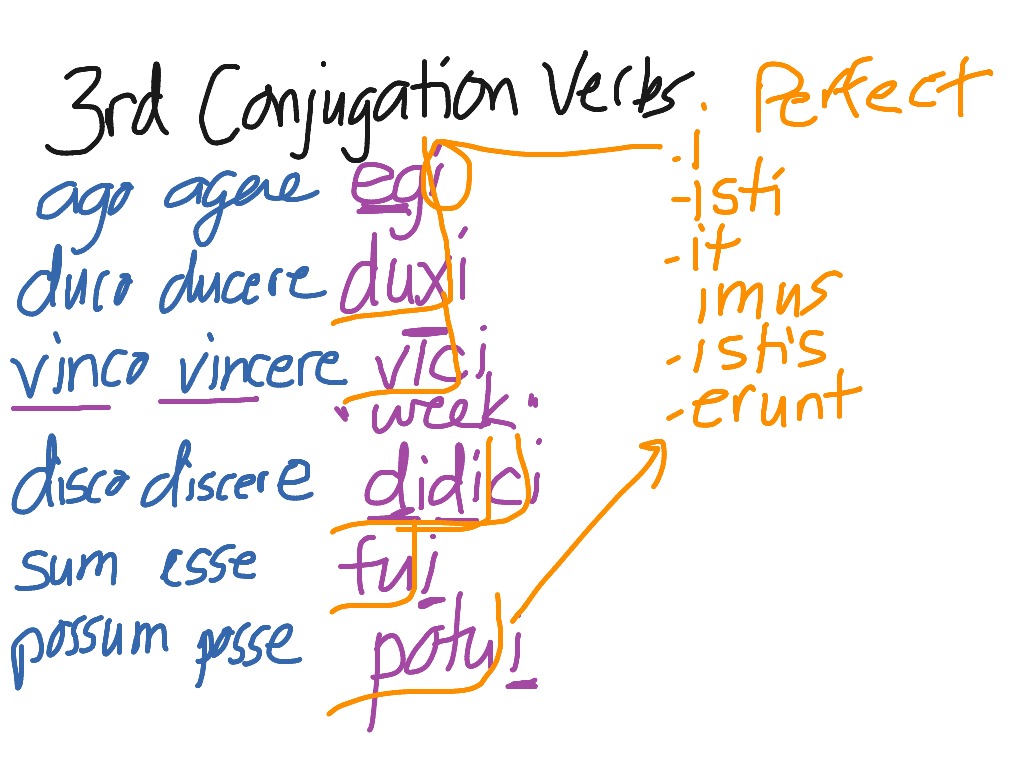 3rd Conjugation Verbs
ago agere egi
duco ducere duxi
vinco vincere vīci
"week"
disco discere didici
sum esse fui
possum posse potui
Perfect
-i
-isti
-it
imus
-istis
-erunt